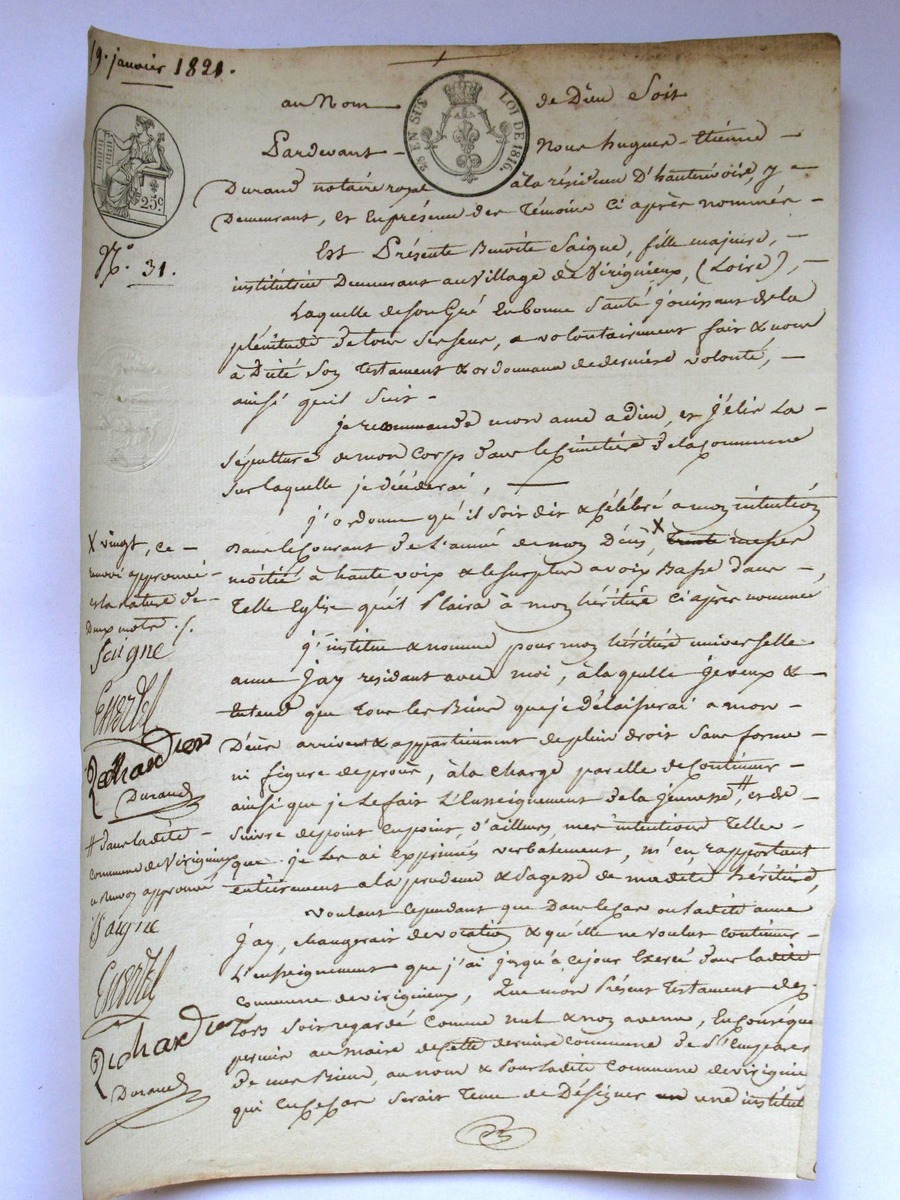 19. janvier 1821.
au Nom de Dieu Soit
25 EN SUS LOI DE 1816.
25c.
Pardevant Nous hugues-étienne
Durand notaire royal à la résidence D'hauterivoire, y
Demeurant, et En présence des Témoins Ci après nommés
N.° 31.
Est Présente Benoite Saigne, fille majeure,
institutrice Demeurant au Village de Virignieux, (Loire),
Laquelle de son Gré En bonne Santé jouissant de la
plénitude de tous Ses Sens, a volontairement fait & nous
a Dicté Son Testament & ordonnance de dernière volonté,
ainsi qu'il Suit
je recommande mon ame a dieu, et j'élis La
Sépulture de mon Corps dans le Cimetière de la Commune
Sur laquelle je décéderai,
j'ordonne qu'il soit dit & Célébré a mon intention
Dans le Courant de L'année de mon Décès, X trente messes
moitié à haute voix & le surplus a voix Basse dans
Telle Eglise qu'il Plaira à mon héritière Ci après nommée
X vingt, ce
renvoi approuvé
et la rature de
Deux mots ./.
Saigne
Richardier
Durand
j'institue & nomme pour mon héritière universelle
anne Jay residant avec moi, à laquelle je veux &
entend que Tous les Biens que je délaisserai a mon
Décès arrivent & appartiennent de plein droit Sans forme
ni figure de procès, à la Charge par elle de Continuer
ainsi que je Le fait L'Enseignement de la jeunesse #, et de
Suivre de point En point, d'ailleurs, mes intentions Telles
que je Les ai Exprimées verbalement, m'en rapportant
entièrement a la prudence & Sagesse de madite héritière,
# dans ladite
commune de Virignieux
renvoi approuvé
Saigne
Richardier
Durand
voulant Cependant que Dans le Cas ou ladite anne
Jay, changerait de vocation & qu'elle ne voulut Continuer
L'enseignement que j'ai jusqu'à ce jour Exercé dans ladite
Commune de virignieux, Que mon Présent Testament dès
lors Soit regardé Comme nul & non avenu, En Conséquence
permis au maire de Cette dernière Commune de S'Emparer
de mes Biens, au nom & Pour ladite Commune de virignieux
qui En Ce Cas Serait Tenu de Désigner une institut